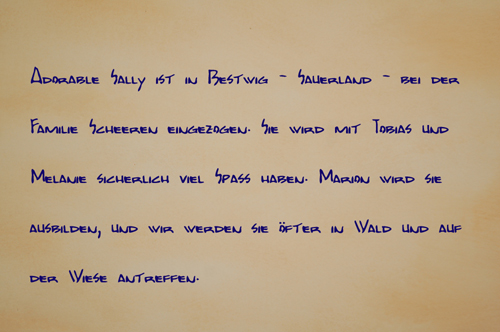 Adorable Sally ist in Bestwig - Sauerland - bei der
Familie Scheeren eingezogen. Sie wird mit Tobias und
Melanie sicherlich viel Spass haben. Marion wird sie
ausbilden, und wir werden sie öfter in Wald und auf
der Wiese antreffen.